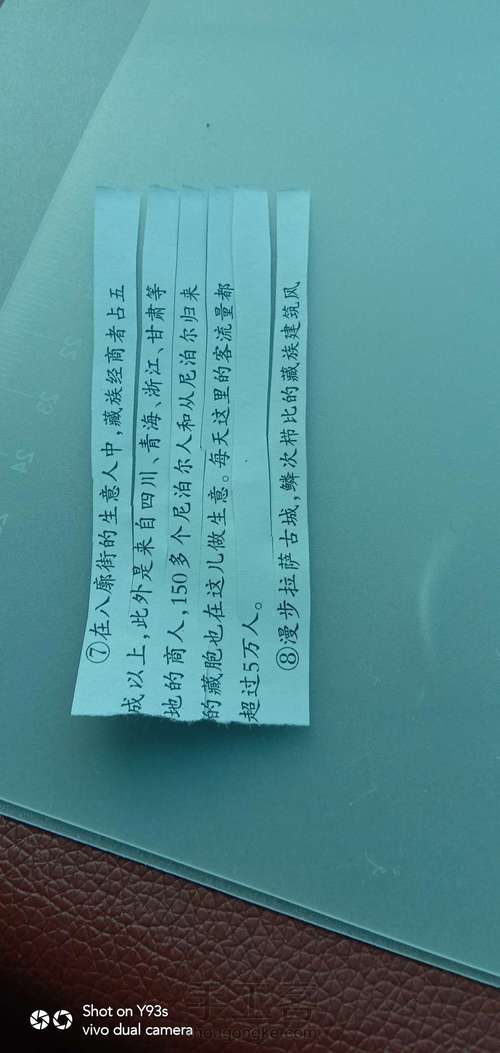 ⑦在八廓街的生意人中,藏族经商者占五
成以上,此外是来自四川、青海、浙江、甘肃等
地的商人,150多个尼泊尔人和从尼泊尔归来
的藏胞也在这儿做生意。每天这里的客流量都
超过5万人。
⑧漫步拉萨古城,鳞次栉比的藏族建筑风
22
23
24
Shot on Y93s
vivo dual camera
手工客